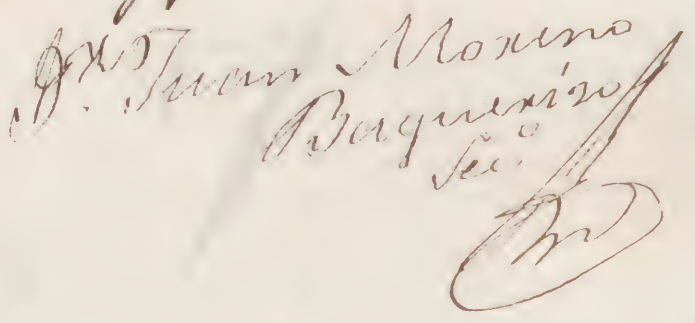 Dr. Juan Moreno
Baquerizo
Sec.º